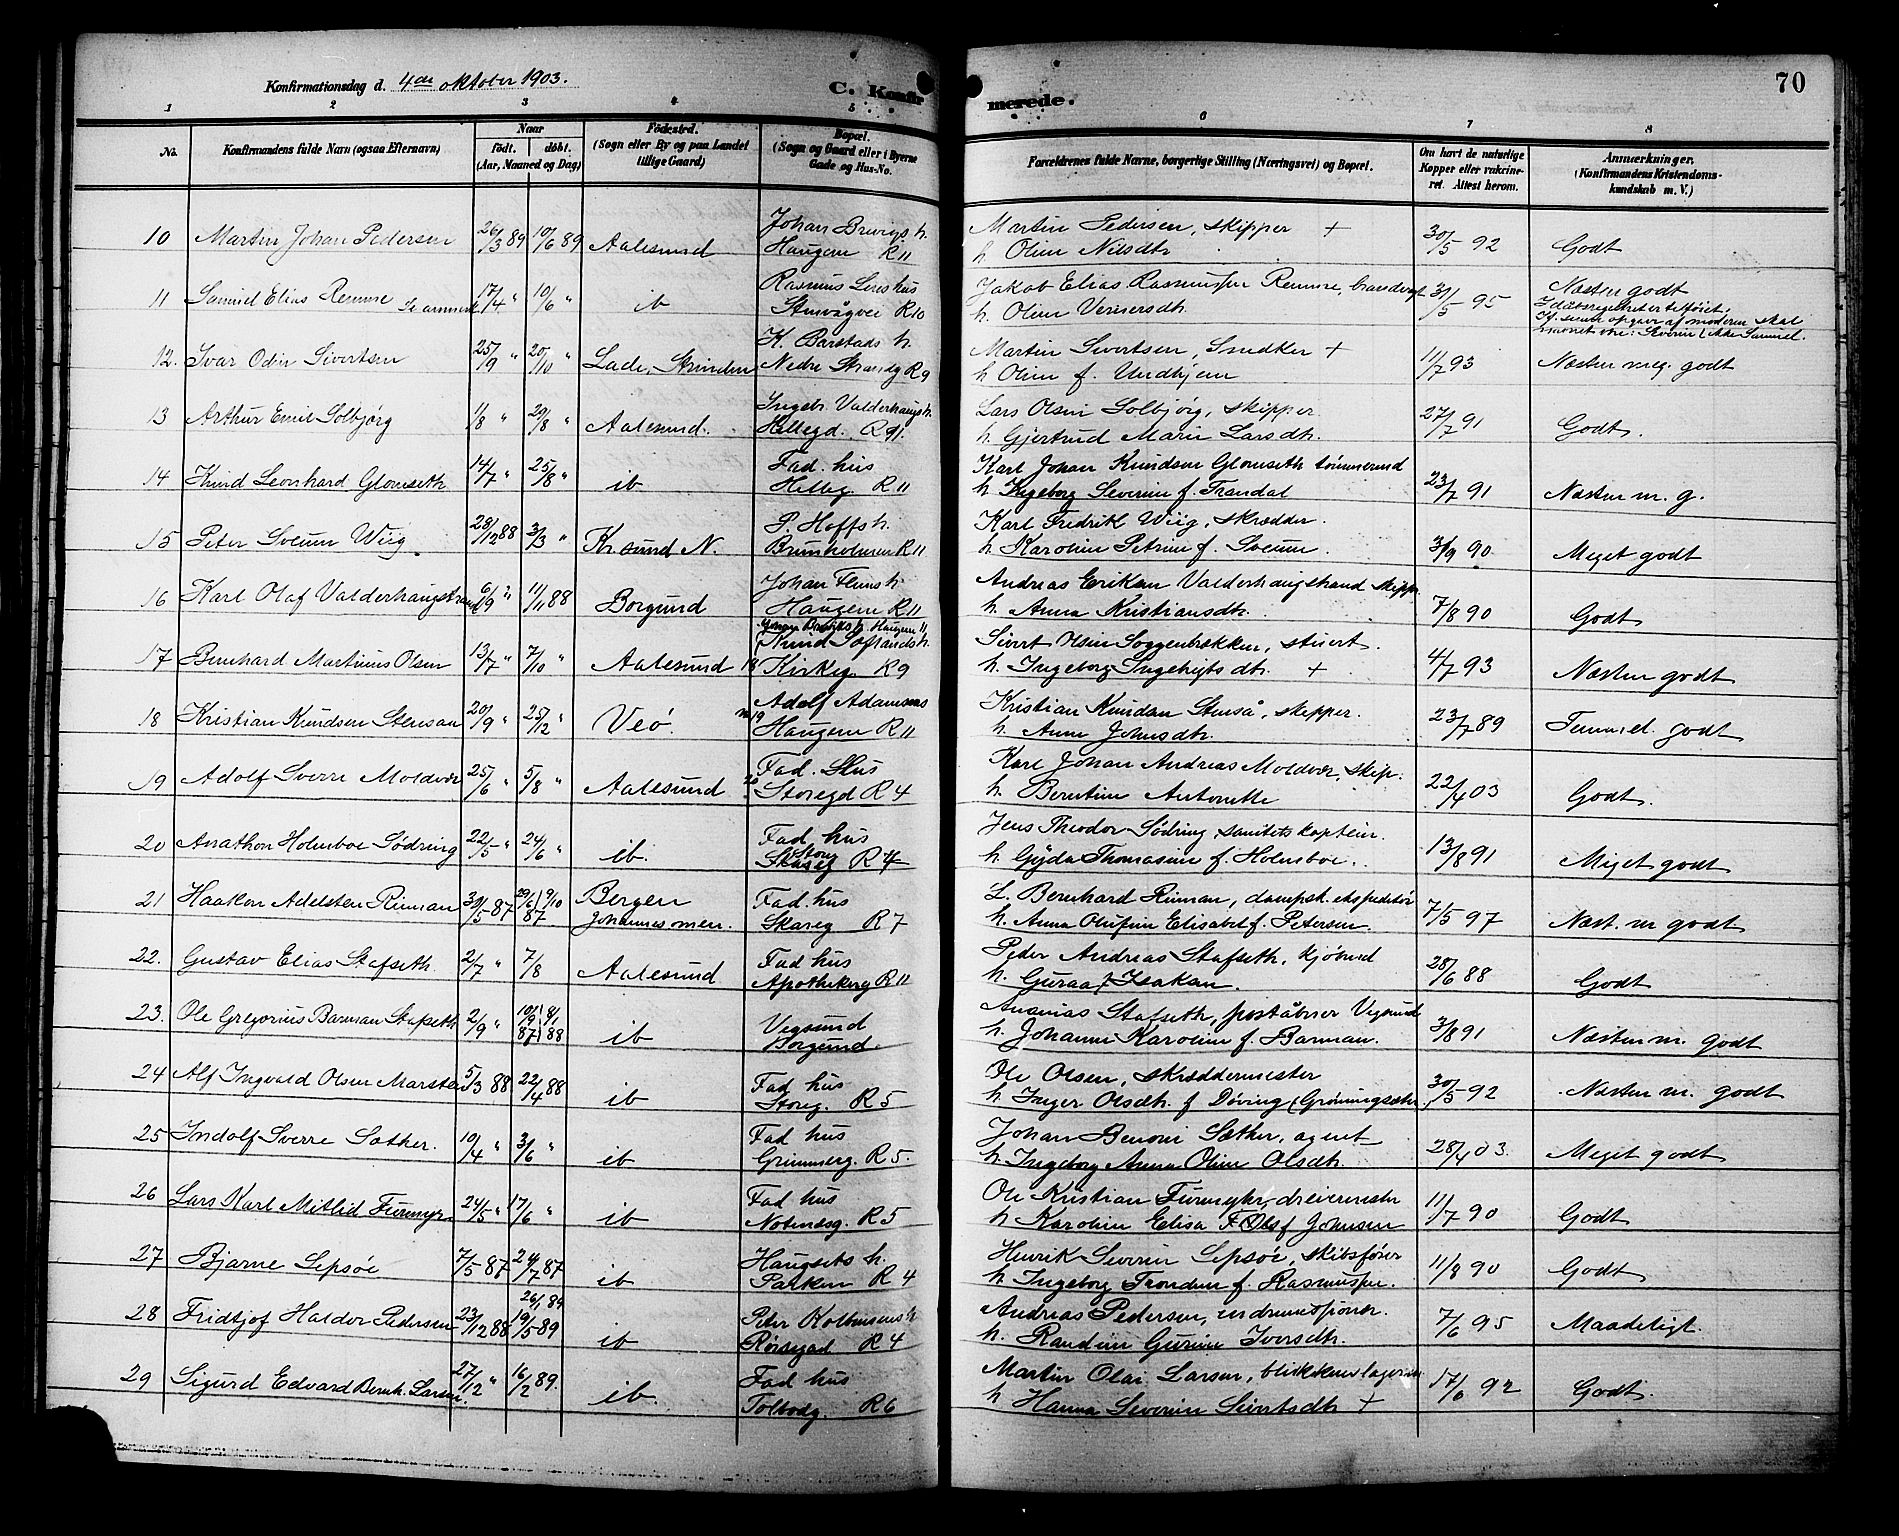 70
Konfirmationsdag d. 4de oktober 1903.
C. Konfirmerede.
1 2 3 4 5 6 7 8
No.
Konfirmandens fulde Navn (ogsaa Efternavn)
Naar
født. døbt.
(Aar, Maaned og Dag)
Fødested.
(Sogn eller By og paa Landet
tillige Gaard)
Bopæl.
(Sogn og Gaard eller i Byerne
Gade og Hus-No.
Forældrenes fulde Navne, borgerlige Stilling (Næringsvei) og Bopæl.
Om havt de naturlige
Kopper eller vakcineret. Attest herom.
Anmærkninger.
(Konfirmandens Kristendomskundskab m. V.)
10 Martin Johan Pedersen 26/3 89 10/6 89 Aalesund Johan Brevigs h. Haugem R 11
Martin Pedersen, skipper +
h. Oline Nilsdtr. 30/5 92 Godt
11 Samuel Elias Remme Se anmerk 17/4 " 10/6 " ib Rasmus hus R 10
Jakob Elias Rasmussen Remme
h. Oline 31/5 95 Næsten godt
12. Ivar Odin Sivertsen 25/9 " 20/10 " Lade, Strinden K. Barstads h. Nedre Strandg R 9
Martin Sivertsen, Snedker +
h Oline f. 11/7 93 Næsten meg. godt
13 Arthur Emil Solbjørg 1/8 " 29/8 " Aalesund. Ingebr. Valderhaugs h. Hellegd. R 91.
Lars Olsen Solbjørg, skipper
h. Gjertrud Marie Larsdtr. 27/7 91 Godt.
14 Knud Leonhard Glomseth 14/7 " 25/8 " ib Fad. hus Helleg. R 11
Karl Johan Knudsen Glomseth tømmermd
h. Ingeborg Severine f. Trandal 23/7 91 Næsten m. g.
15 Peter Sveum Wiig 28/12 88 3/3 " Krsund N. P. Hoffs h. Brunholmen R 11
Karl Fredrik Wiig, skrædder.
h. Karoline Petrine f. Sveum. 3/9 90 Meget godt
16 Karl Olaf Valderhaugstrand 6/9 " 11/11 88 Borgund Johan Flems h. Haugem R 11
Andreas Eriksen Valderhaugstrand skipp.
h. Anna Kristiansdtr. 7/8 90 Godt
17 Bernhard Martinius Olsen 13/7 " 7/10 " Aalesund Johan Brevigs h. Haugem 11
Knud Søflands h. 18 Kirkeg. R 9
Sivert Olsen Soggenbækken, stuert.
h. Ingeborg dtr. + 4/7 93 Næsten godt
18 Kristian Knudsen Stensaa 20/9 " 25/12 " Veø. Adolf Adamsens m 19 Haugem R 11
Kristian Knudsen Stenså, skipper.
h. Anne Johnsdtr. 23/7 89 Temmel. godt
19 Adolf Sverre Moldvær 25/6 " 5/8 " Aalesund Fad. Hus 20 Storegd R 4
Karl Johan Andreas Moldvær, skip.
h. Berntine Antonette 22/4 03 Godt.
20 Anathon Holmboe Sødring 22/5 " 24/6 " ib. Fad hus Storg R 4
Jens Theodor Sødring, sanitetskaptein.
h. Gyda Thomasine f. Holmboe. 13/8 91 Meget godt
21 Haakon Adelsten Riiman 30/5 87 29/6 87 9/10 Bergen Johannesmen. Fad. hus Skareg R 7
L. Bernhard Riiman, dampsk. ekspeditør
h. Anna Olufine Elisabet f. Petersen. 7/5 97 Næst. m godt
22. Gustav Elias Stafseth. 2/7 " 7/8 Aalesund Fad hus Apothekerg R 11
Peder Andreas Stafseth, kjøbmd
h. Guraa f. Isaksen. 28/6 88 Godt
23. Ole Gregorius Barman Stafseth 2/9 " 10/9 87 8/1 88 ib Vegsund Borgund.
Ananias Stafseth, poståbner Vegsund
h. Johanne Karoline f. Barman. 3/8 91 Næsten m. godt
24 Alf Ingvald Olsen Marstein 5/3 88 22/4 88 ib Fad hus Storeg. R 5
Ole Olsen, skræddermester
h Inger Olsdtr. f Døving 30/5 92 Næsten m. godt
25 Indolf Sverre Sæther. 10/4 " 3/6 " ib Fad hus Grimmerg. R 5.
Johan Benoni Sæther, agent
h. Ingeborg Anna Oline Olsdtr. 28/4 03. Meget godt
26 Lars Karl Mitlid Furmyr 24/5 " 17/6 " ib Fad hus Notenesg. R 5
Ole Kristian Furmyhr, dreiermester
h Karoline Elisa f Johnsen 11/7 90 Godt
27 Bjarne Lepsøe 7/5 87 24/7 87 ib Haugsets h. Parken R 4
Henrik Severin Lepsøe, skibsfører
h Ingeborg f. Rasmussen 11/8 90 Godt
28 Fridtjof Haldor Pedersen 23/12 88 26/1 89 19/5 89 ib Peter Kolbensens h Røisegad R 4
Andreas Pedersen,
h. Randine Gurine Iversdtr. 7/6 95 Maadeligt.
29 Sigurd Edvard Bernh. Larsen. 27/12 " 16/2 89. ib. Fad hus Tolbodg. R 6
Martin Olai Larsen, blikkenslager
h Hanna Severine Sivertsdtr + 17/6 92 Godt.